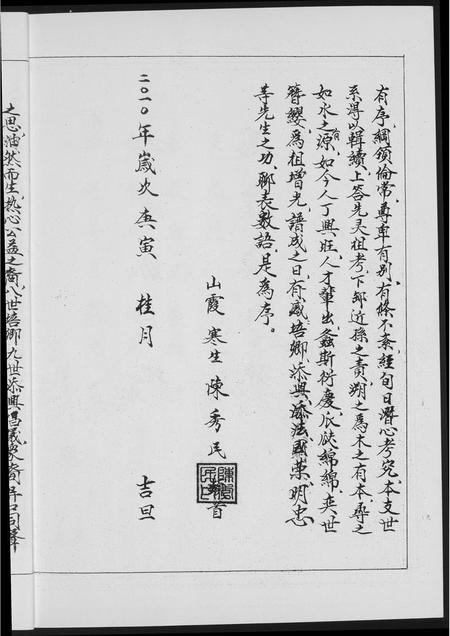 有序，綱領倫常，尊卑有别，有條不紊，經旬日潛心考究，本支世
系得以輯續，上答先灵祖考，下卸近孫之責，朔之為木之有本，尋之
如水之有源，如今人丁興旺，人才輩出，螽斯衍慶，瓜瓞綿綿，奕世
簪纓，為祖增光，譜成之日，有感培卿、添興、添法、國荣、明忠
等先生之功，聊表數語，是為序。
山霞 寒生 陳秀民 首
二〇一〇年歲次庚寅 桂月 吉旦
之思油然而生，熱心公益之裔，八世培卿，九世添興，昌議